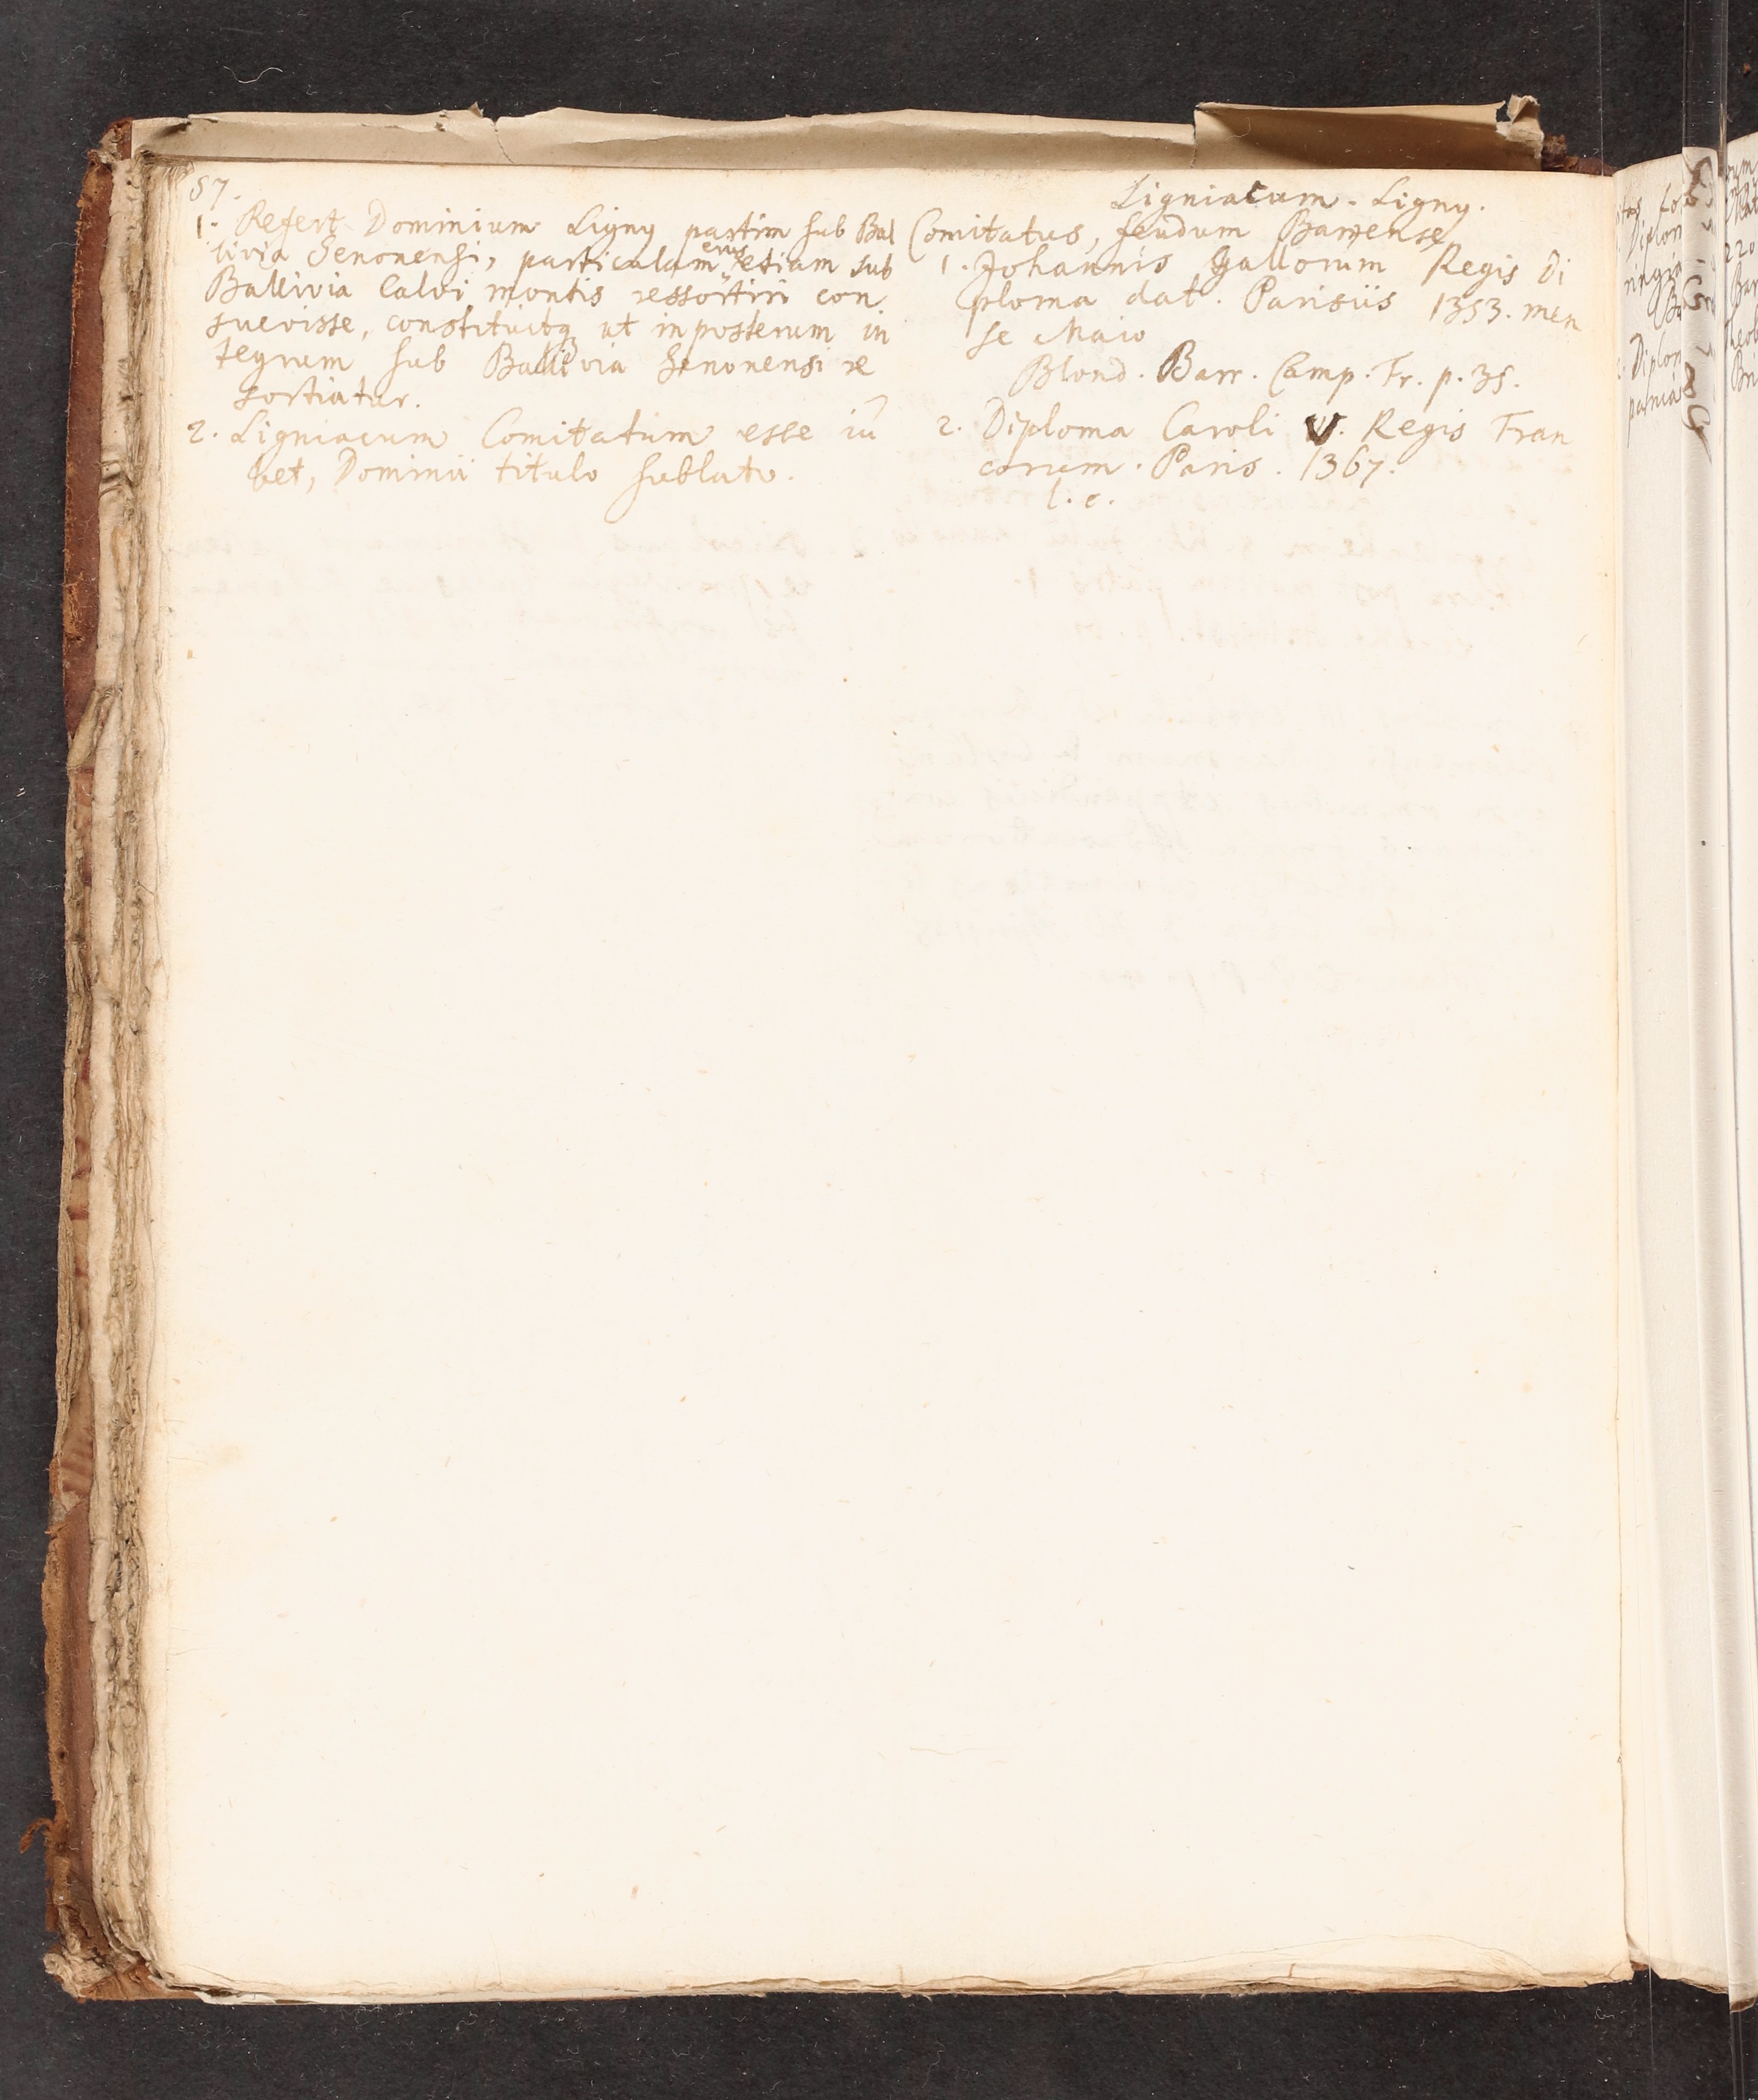 57.
1. Refert Dominium Ligny partim sub Bal
livia Senonensi, particulam eius etiam sub
Ballivia Calvi montis ressortiri con
suevisse, constituitq ut in posterum in
tegrum sub Ballivia Senonensi re
sortiatur.
2. Ligniacum Comitatum esse iu
bet, Dominii titulo sublato.
Ligniacum. Ligny.
Comitatus, feudum Barrense
1. Johannis Gallorum Regis Di
ploma dat. Parisiis 1353. men
se Maio
Blond. Barr. Camp. Fr. p. 35.
2. Diploma Caroli V. Regis Fran
corum. Paris. 1367.
l. c.